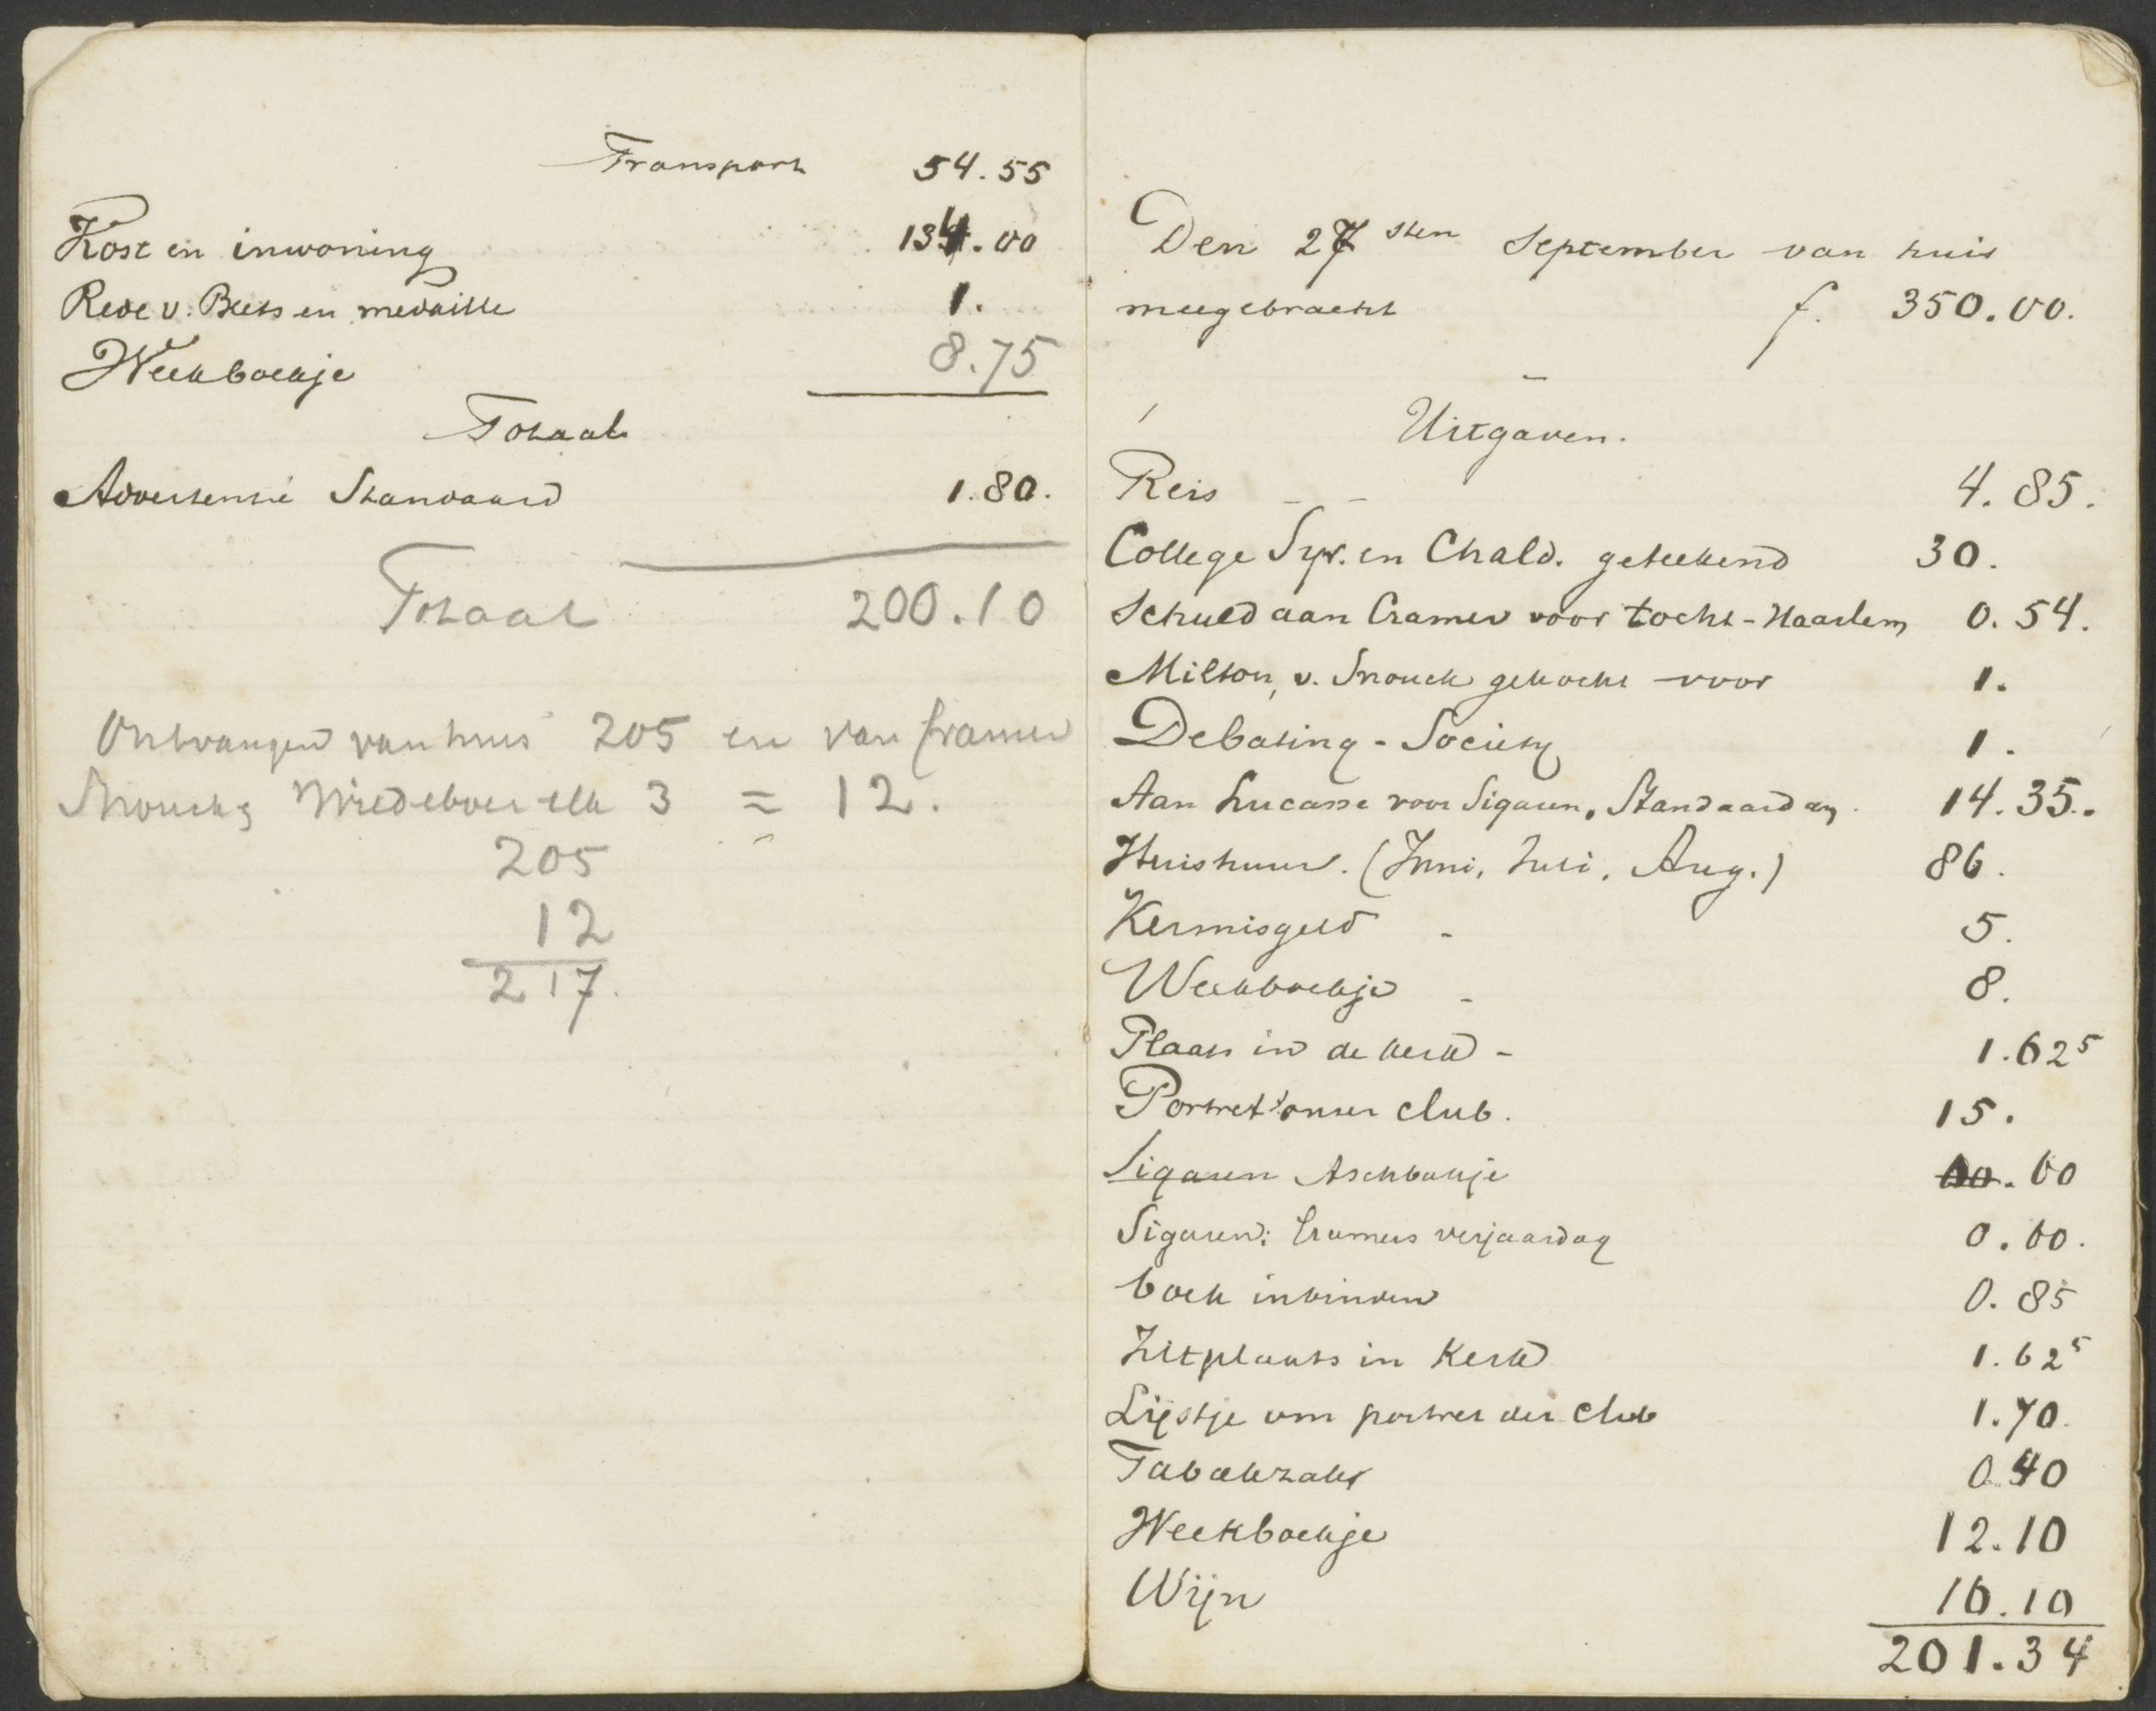 Transport 54.55
Kost en inwoning 134.00
Rede v. Beets en medaille 1.
Weekboekje 8.75
Totaal
Advertentie Standaard 1.80.
Totaal 200.10
Ontvangen van huis 205 en van Cramer
Snouck, Wiedeboer elk 3 = 12.
205
12
217.
Den 27sten September van huis
meegebracht f. 350.00.
Uitgaven.
Reis 4.85.
College Syr. en Chald. geteekend 30.
Schuld aan Cramer voor tocht-Haarlem 0.54.
Milton, v. Snouck gekocht voor 1.
Debating-Society 1.
Aan Lucasse voor Sigaren, Standaard enz. 14.35.
Huishuur. (Juni, Juli, Aug.) 86.
Kermisgeld 5.
Weekboekje 8.
Plaats in de kerk 1.62⁵
Portret onzer club. 15.
Sigaren Aschbakje .60
Sigaren: Cramers verjaardag 0.60.
boek inbinden 0.85
Zitplaats in Kerk 1.62⁵
Lijstje om portret der club 1.70.
Tabakzak 0.40
Weekboekje 12.10
Wijn 16.10
201.34